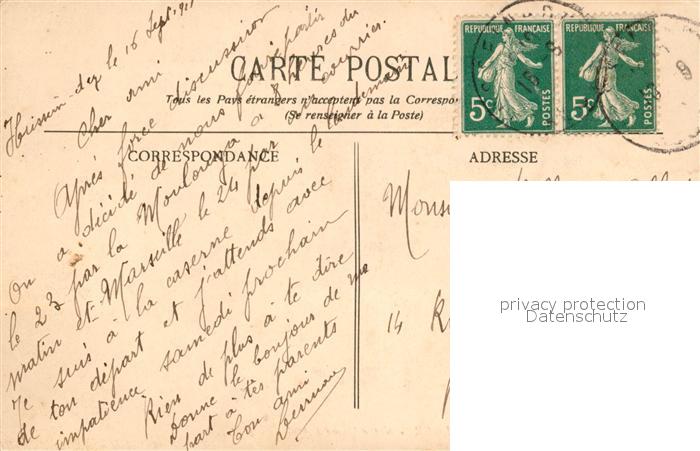 Hussein dey le 16 Sept.
CARTE POSTALE
Tous les Pays étrangers n'acceptent pas la Correspon
(Se renseigner à la Poste)
CORRESPONDANCE
ADRESSE
REPUBLIQUE FRANÇAISE
5c
POSTES
REPUBLIQUE FRANÇAISE
5c
POSTES
Cher ami
Après force discussion
On a décidé de nous faire partir
le 23 par la Moulouya à 8 heures du
matin et Marseille le 24 par courrier.
Je suis à la caserne depuis le lendemain
de ton départ et j'attends avec
impatience samedi prochain
Rien de plus à te dire
Donne le bonjour de ma
part à tes parents
Ton ami
Monsi
14 R
privacy protection
Datenschutz